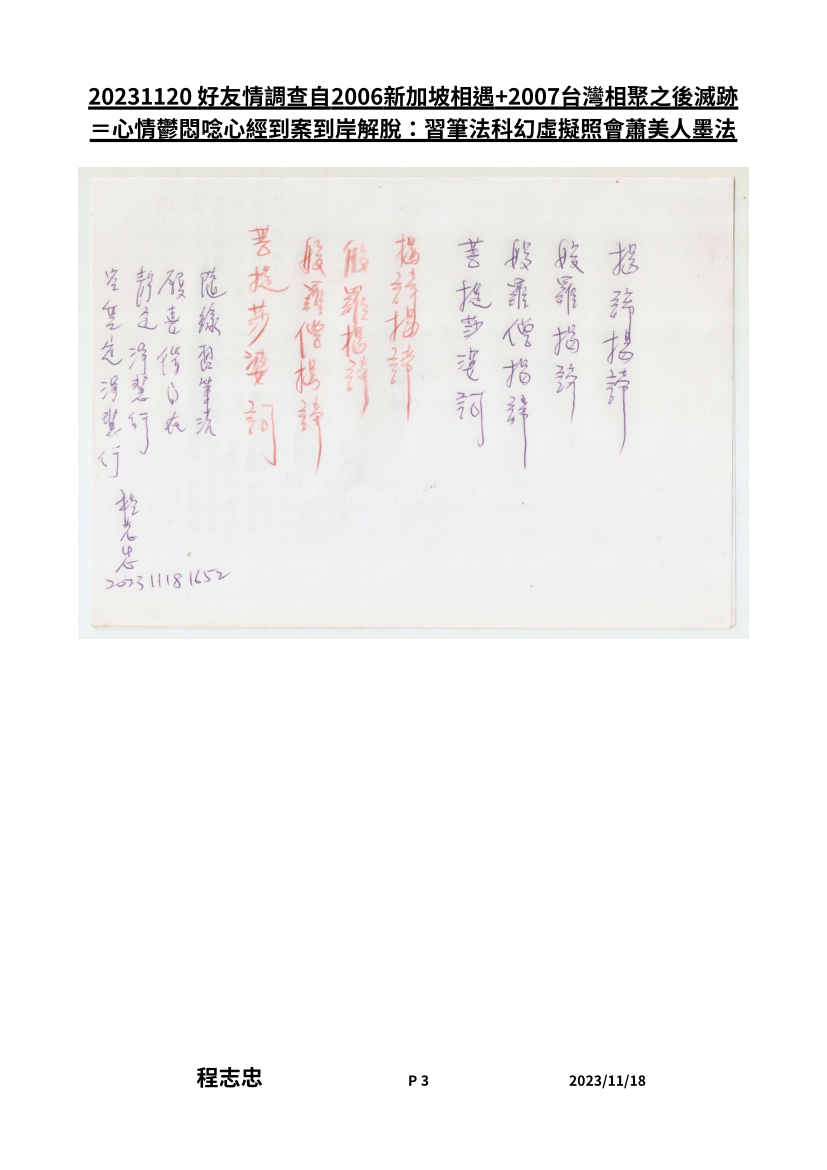 20231120 好友情調查自2006新加坡相遇+2007台灣相聚之後滅跡
＝心情鬱悶唸心經到案到岸解脫：習筆法科幻虛擬照會蕭美人墨法
揭諦揭諦
般羅揭諦
般羅僧揭諦
菩提莎婆訶
揭諦揭諦
般羅揭諦
般羅僧揭諦
菩提莎婆訶
隨緣習筆流
自在
靜定淨慧行
定淨慧行
程志忠
202311181652
程志忠 P 3 2023/11/18